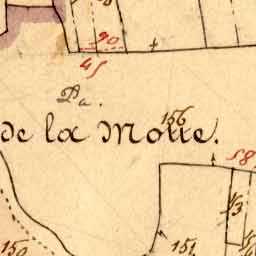 90
45
Pa.
156
de la Motte.
58
13
150
151